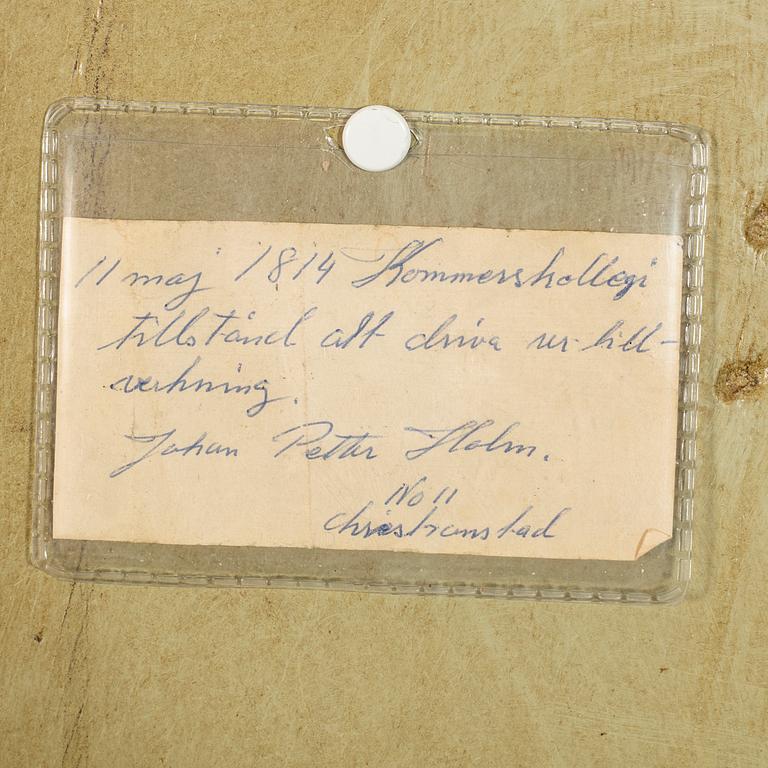 11 maj 1814 Kommerskollegi
tillstånd att driva ur-till-
verkning.
Johan Petter Holm.
No 11
Christianstad